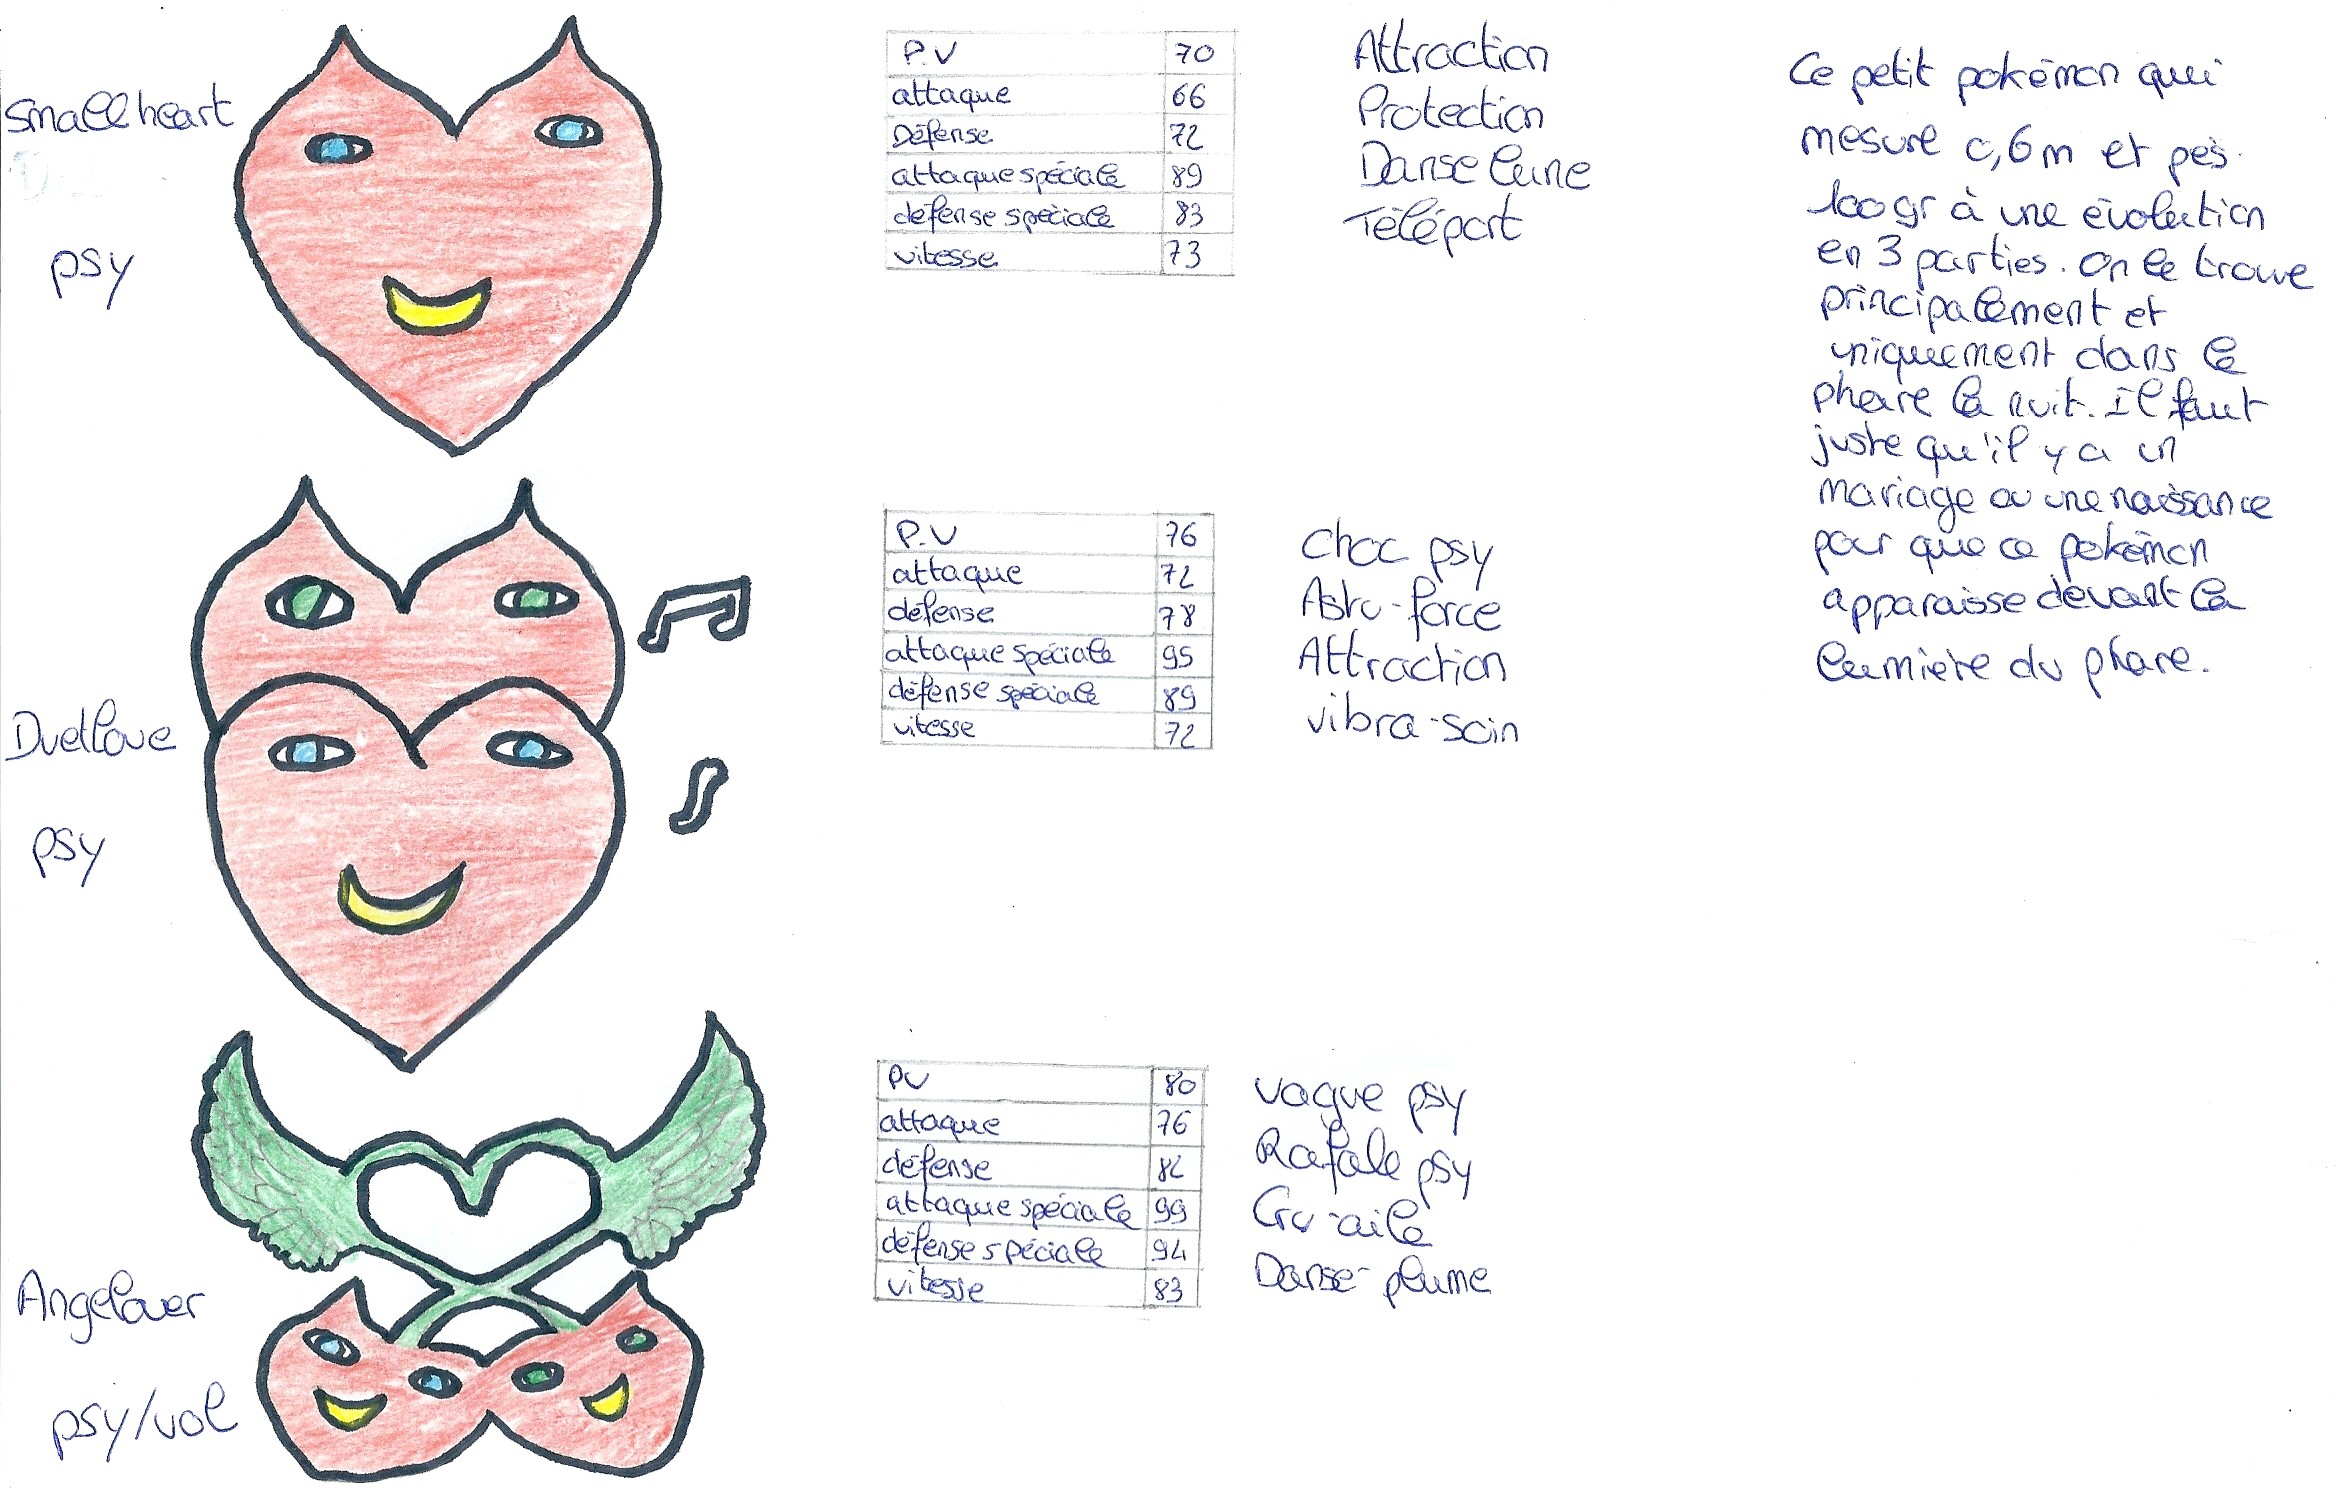 Smallheart
psy
P.V 70
attaque 66
Défense 72
attaque spéciale 89
défense spéciale 83
vitesse 73
Attraction
Protection
Danse lune
Télèport
Ce petit pokémon qui
mesure 0,6m et pès
100gr à une évolution
en 3 parties. On le trouve
principalement et
uniquement dans le
phare la nuit. Il faut
juste qu'il y a un
mariage ou une naissance
pour que ce pokémon
apparaisse devant la
lumière du phare.
Duetlove
psy
P.V 76
attaque 72
défense 78
attaque spéciale 95
défense spéciale 89
vitesse 72
choc psy
Astro-force
Attraction
vibra-soin
Angelover
psy/vol
PV 80
attaque 76
défense 82
attaque spéciale 99
défense spéciale 94
vitesse 83
vague psy
Rafale psy
Cru-aile
Danse-plume